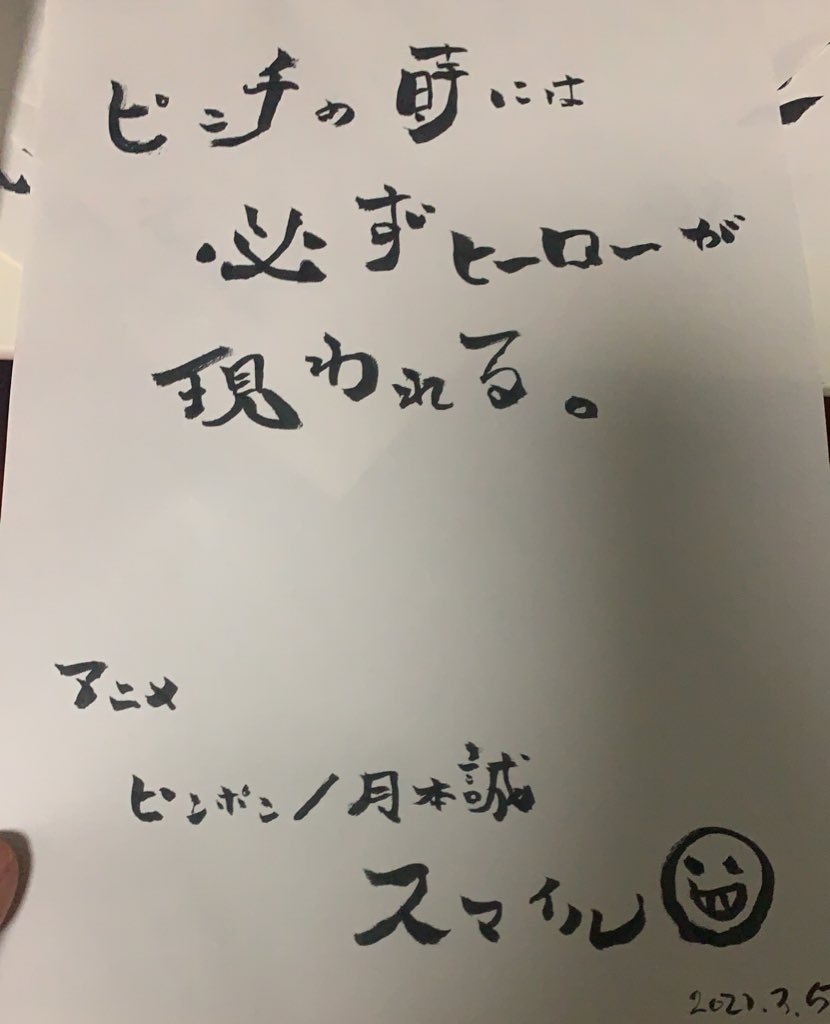 ピンチの時には
必ずヒーローが
現われる。
アニメ
ピンポン/月本誠
スマイル
2021.3.5